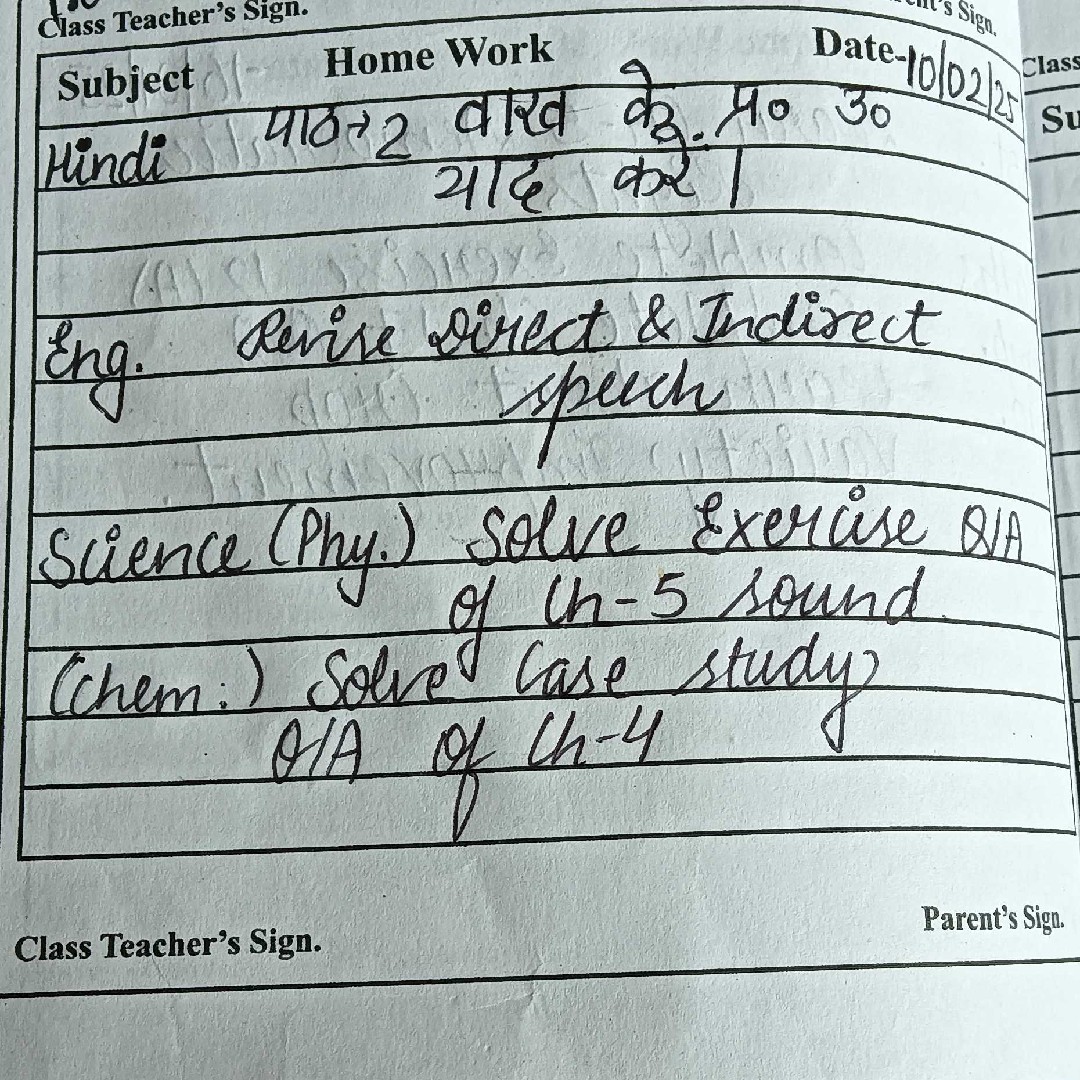 Class Teacher's Sign.
Sign.
Subject Home Work Date-10/02/25
Class
Hindi पाठ→2 वाख के. प्र० उ०
याद करे।
Eng. Revise Direct & Indirect
speech
Science (Phy.) Solve Exercise Q/A
of Ch-5 sound
(Chem:) Solve Case study
Q/A of Ch-4
Parent's Sign.
Class Teacher's Sign.